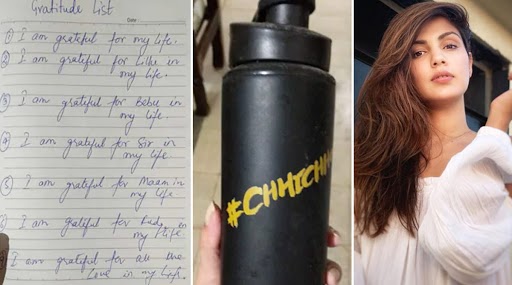 Gratitude List
Date
① I am grateful for my life.
② I am grateful for Lillu in
my life.
③ I am grateful for Bebu in
my life.
④ I am grateful for Sir in
my life
⑤ I am grateful for Maam in
my life
I am grateful for
my life
I am grateful for all the
Love in my Life.
#CHHICHH